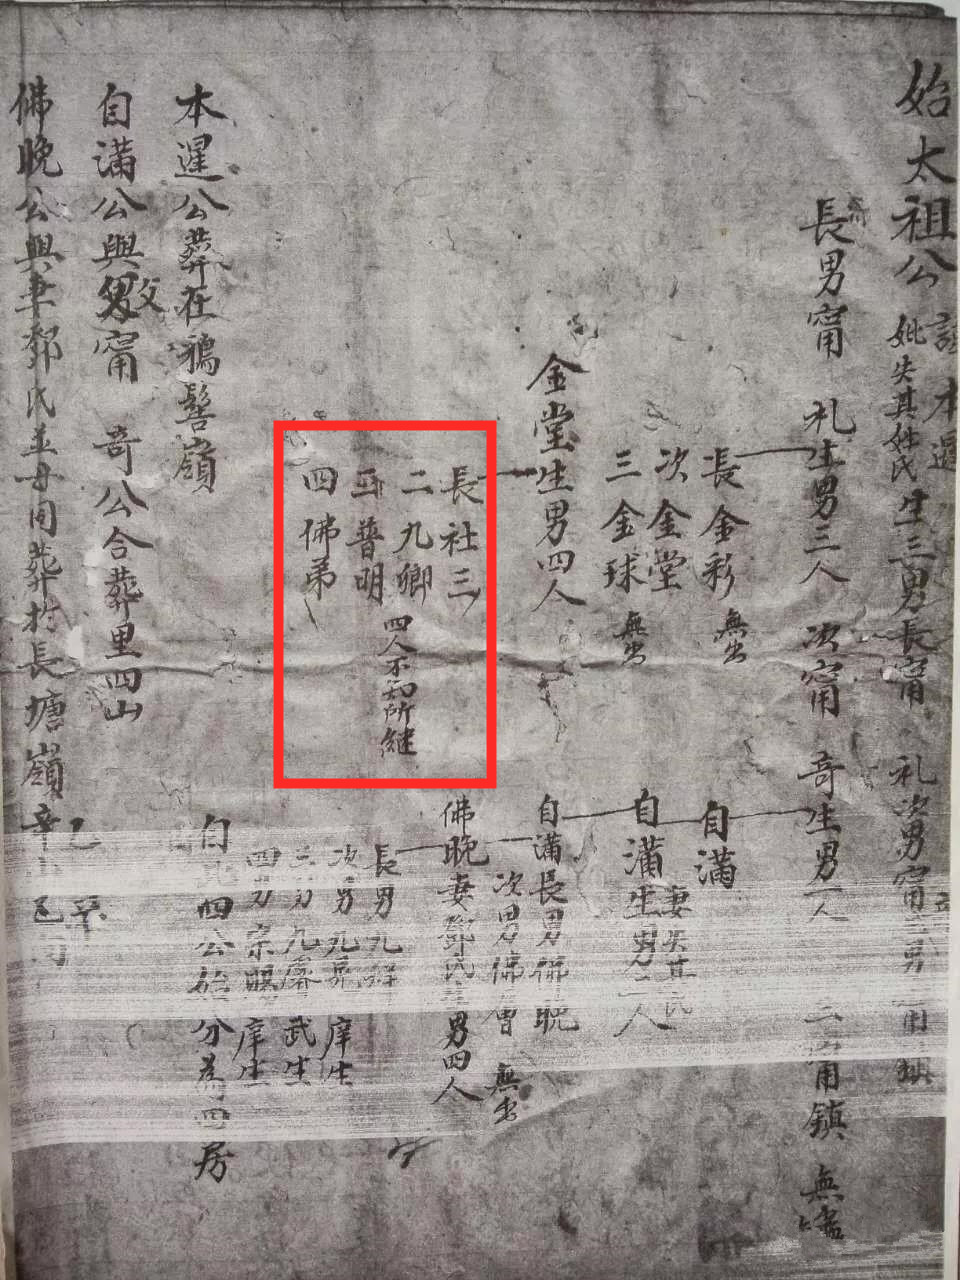 始太祖公諱本遲
妣失其姓氏生三男長甯礼次男甯奇三男甯鎮
長男甯礼生男三人
次甯奇生男一人
三甯鎮無嗣
長金彩無出
次金堂
三金球無出
金堂生男四人
長社三
二九卿
三普明
四佛弟
四人不知所継
自滿
自滿妻失其氏生男二人
自滿長男佛晚
次男佛會無出
佛晚妻鄧氏生男四人
長男九
次男九 庠生
三男九 武生
四男宗 庠生
自此四公始分為四房
本遲公葬在鴉髻嶺
自滿公與父甯奇公合葬里四山
佛晚公與妻鄧氏並母同葬於長塘嶺辛山乙向